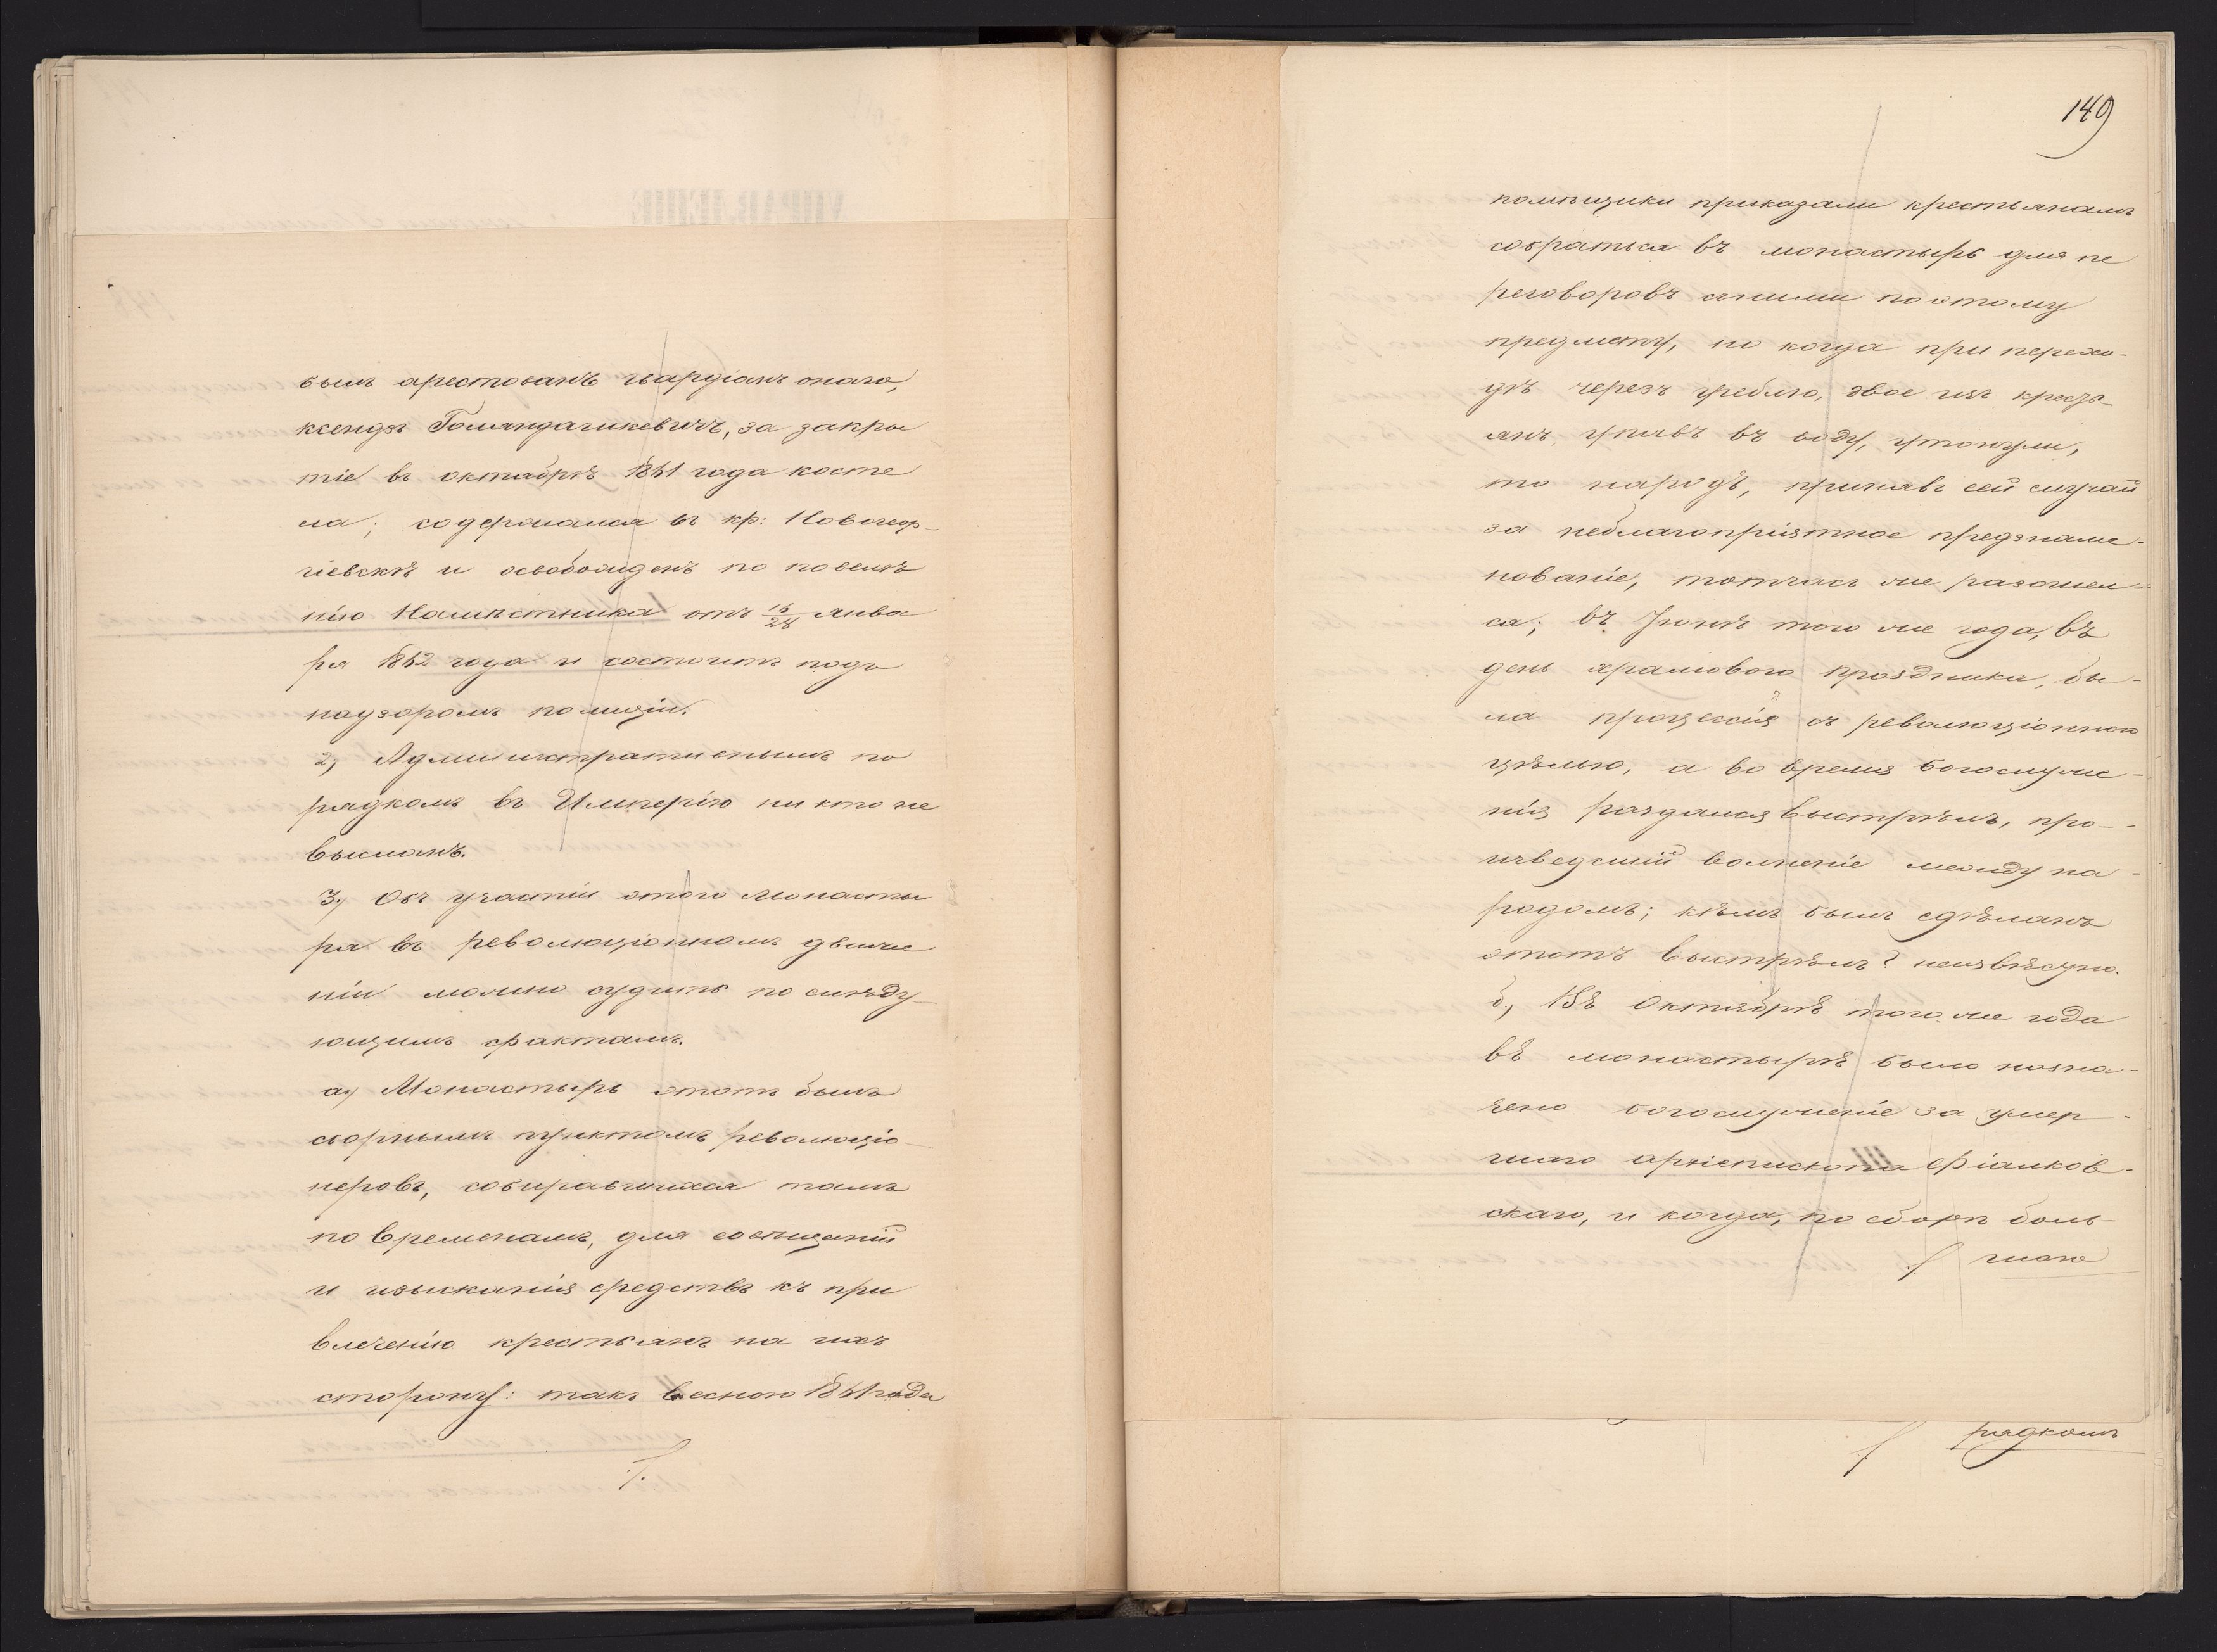 былъ арестованъ гвардіанъ онаго,
ксендзъ Голяндзикевичъ, за закры
тіе въ октябрѣ 1861 года косте
ла; содержался въ кр: Новогеор-
гіевскѣ и освобожденъ по повелѣ
нію Намѣстника отъ 16/28 Янва
ря 1862 года и состоитъ подъ
надзоромъ полиціи.
2, Административнымъ по
рядкомъ въ Имперію никто не
высланъ.
3, Объ участіи этого монасты
ря въ революціонномъ движе
ніи можно судить по слѣду-
ющимъ фактамъ.
а, Монастырь этотъ былъ
сборнымъ пунктомъ революціо-
неровъ, собиравшихся тамъ
по временамъ, для совѣщаній
и изысканія средствъ къ при
влеченію крестьянъ на ихъ
сторону: такъ весною 1861 года
./.
149
помѣщики приказали крестьянамъ
собраться въ монастырь для пе
реговоровъ съ ними по этому
предмету, но когда при перехо-
дѣ черезъ греблю, двое изъ кресть-
янъ, упавъ въ воду, утонули,
то народъ, принявъ сей случай
за неблагопріятное предзнаме-
нованіе, тотчасъ же разошел-
ся; въ Іюнѣ того же года, въ
день храмового праздника, бы-
ла процессія съ революціонною
цѣлью, а во время богослуже-
нія раздался выстрѣлъ, про-
изведшій волненіе между на-
родомъ; кѣмъ былъ сдѣланъ
этотъ выстрѣлъ? неизвѣстно.
б, Въ Октябрѣ того же года
въ монастырѣ было назна-
чено богослуженіе за умер-
шаго архіепископа Фіалков-
скаго, и когда, по сборѣ боль-
шаго
рядкомъ